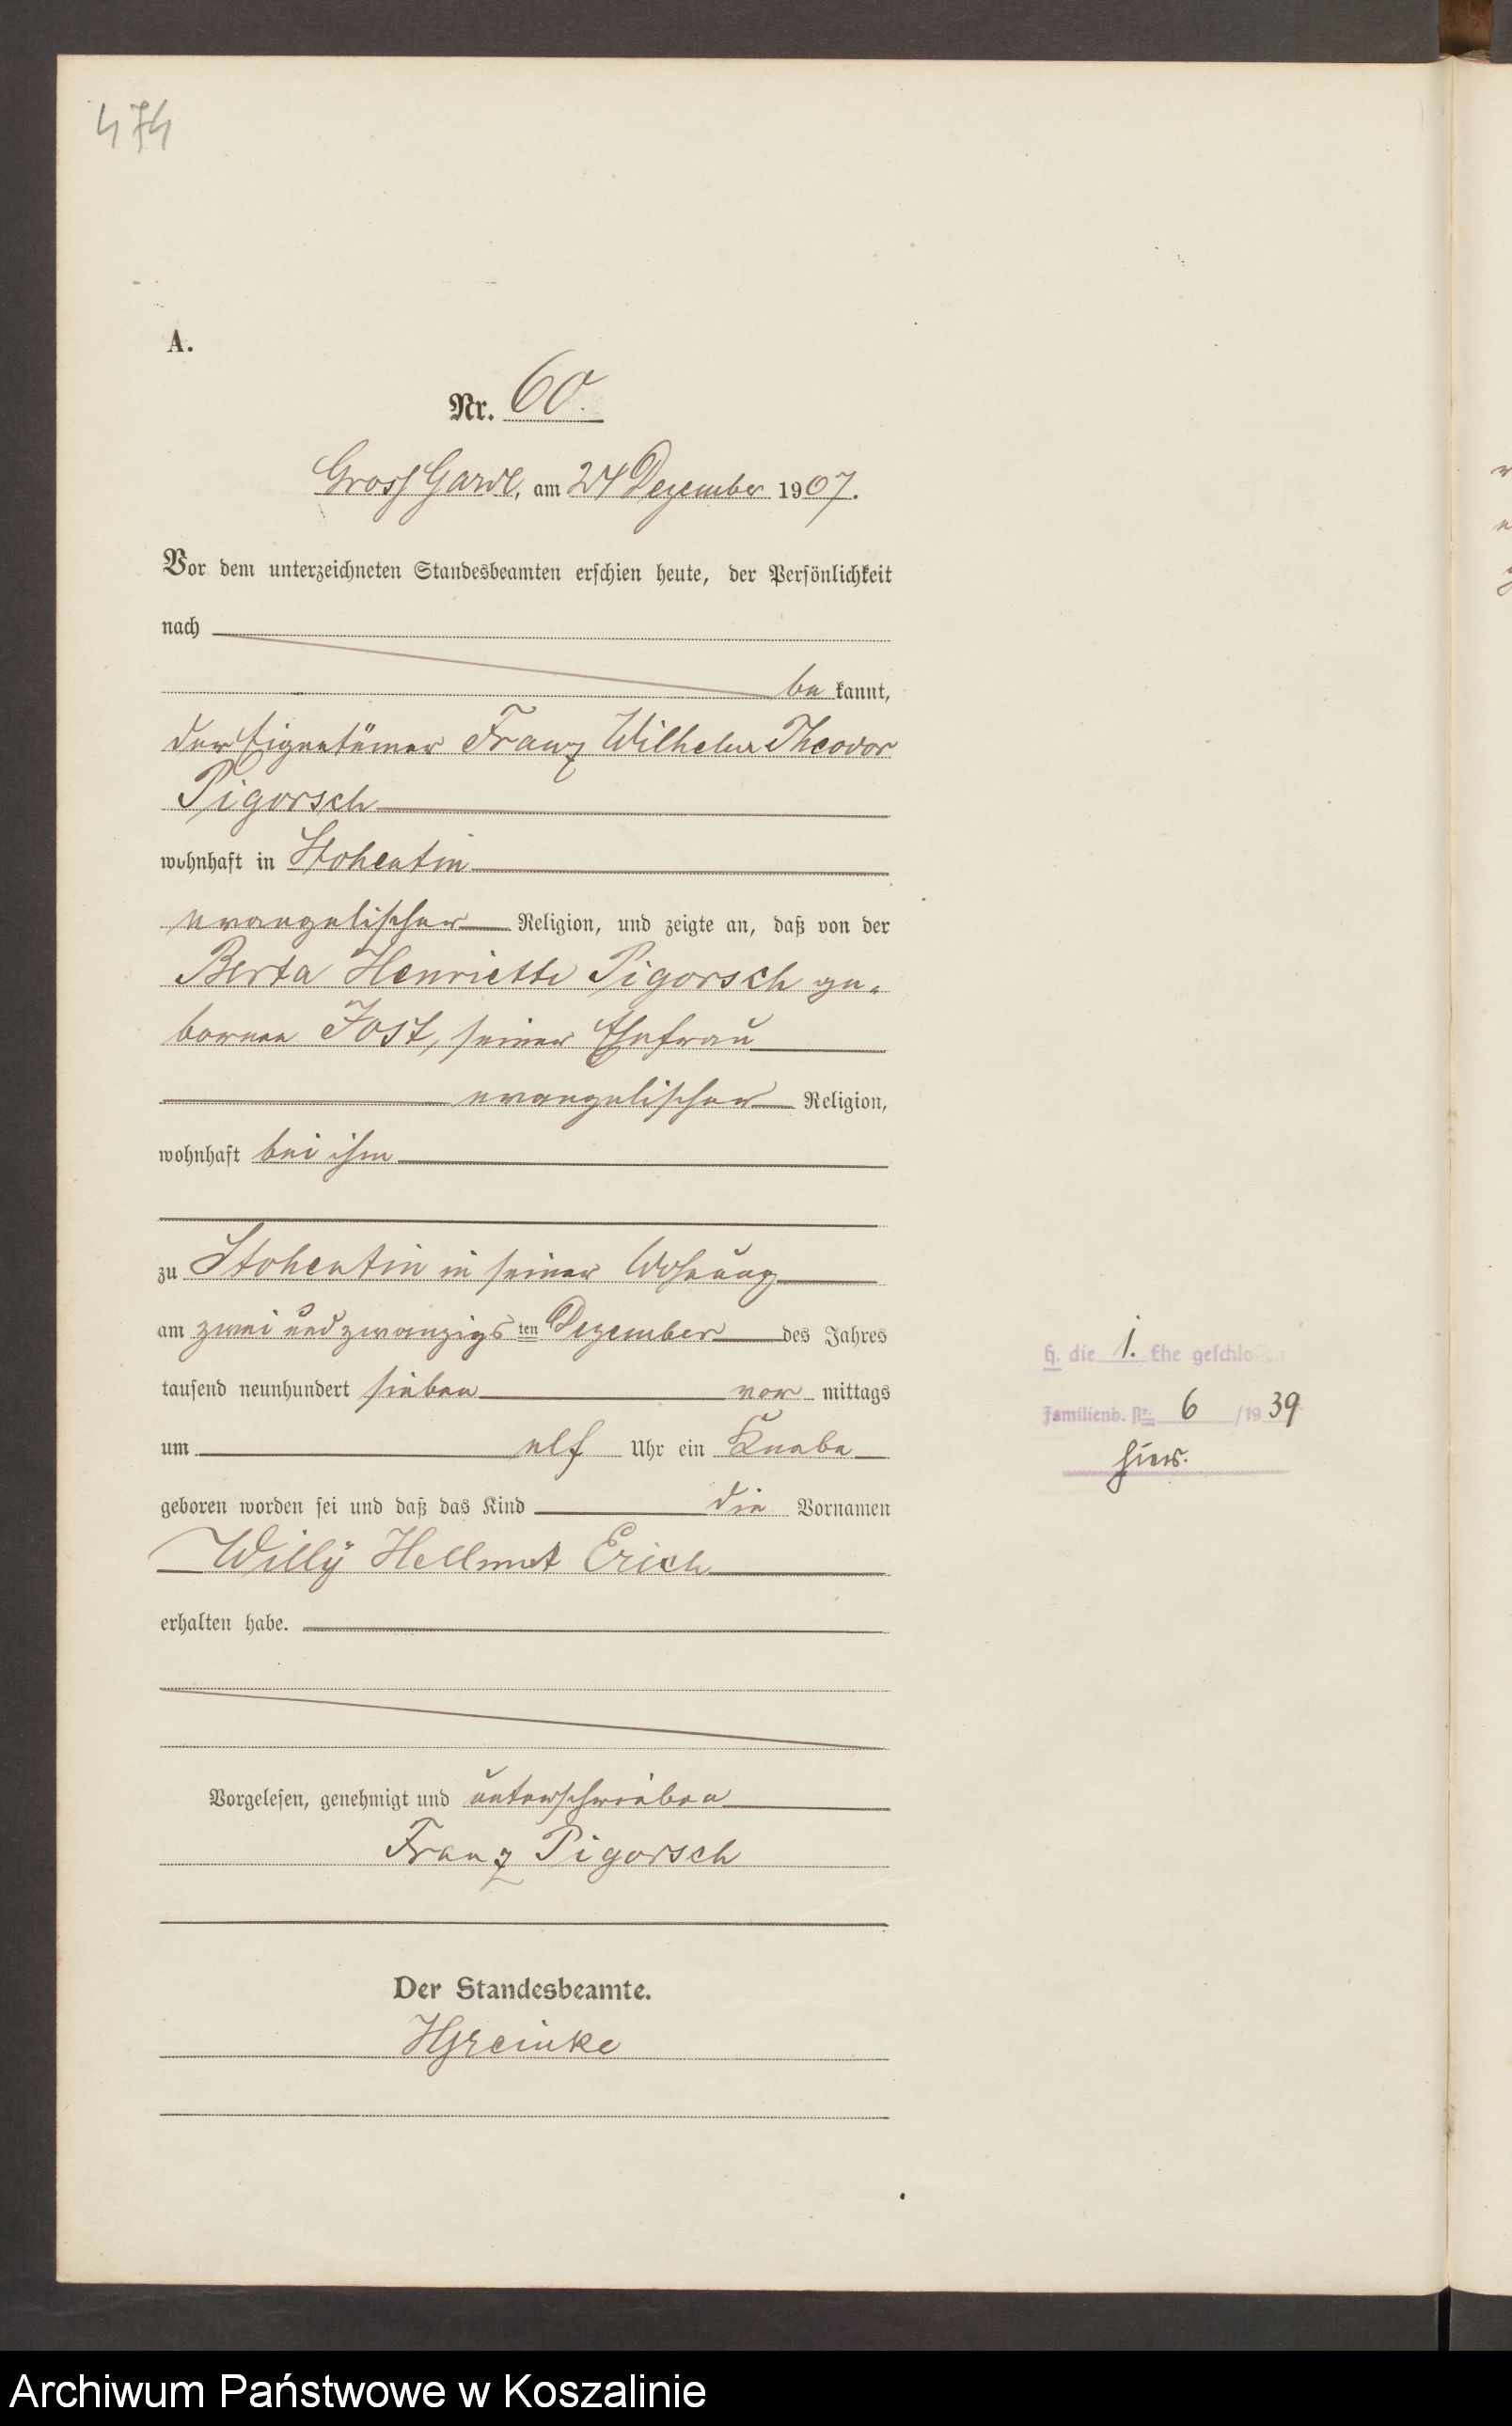 474
A.
Nr. 60.
Gross Garde, am 24 Dezember 1907.
Vor dem unterzeichneten Standesbeamten erschien heute, der Persönlichkeit
nach
be kannt,
der Eigentümer Franz Wilhelm Theodor
Pigorsch
wohnhaft in Stohentin
evangelischer Religion, und zeigte an, daß von der
Berta Henriette Pigorsch ge-
bornen Jost, seiner Ehefrau
evangelischer Religion,
wohnhaft bei ihm
zu Stohentin in seiner Wohnung
am zwei und zwanzigs ten Dezember des Jahres
tausend neunhundert sieben vor mittags
um elf Uhr ein Knabe
geboren worden sei und daß das Kind die Vornamen
Willÿ Hellmut Erich
erhalten habe.
Vorgelesen, genehmigt und unterschrieben
Franz Pigorsch
Der Standesbeamte.
H. die 1. Ehe geschlossen
Familienb. Nr. 6 /1939
hier.
Archiwum Państwowe w Koszalinie